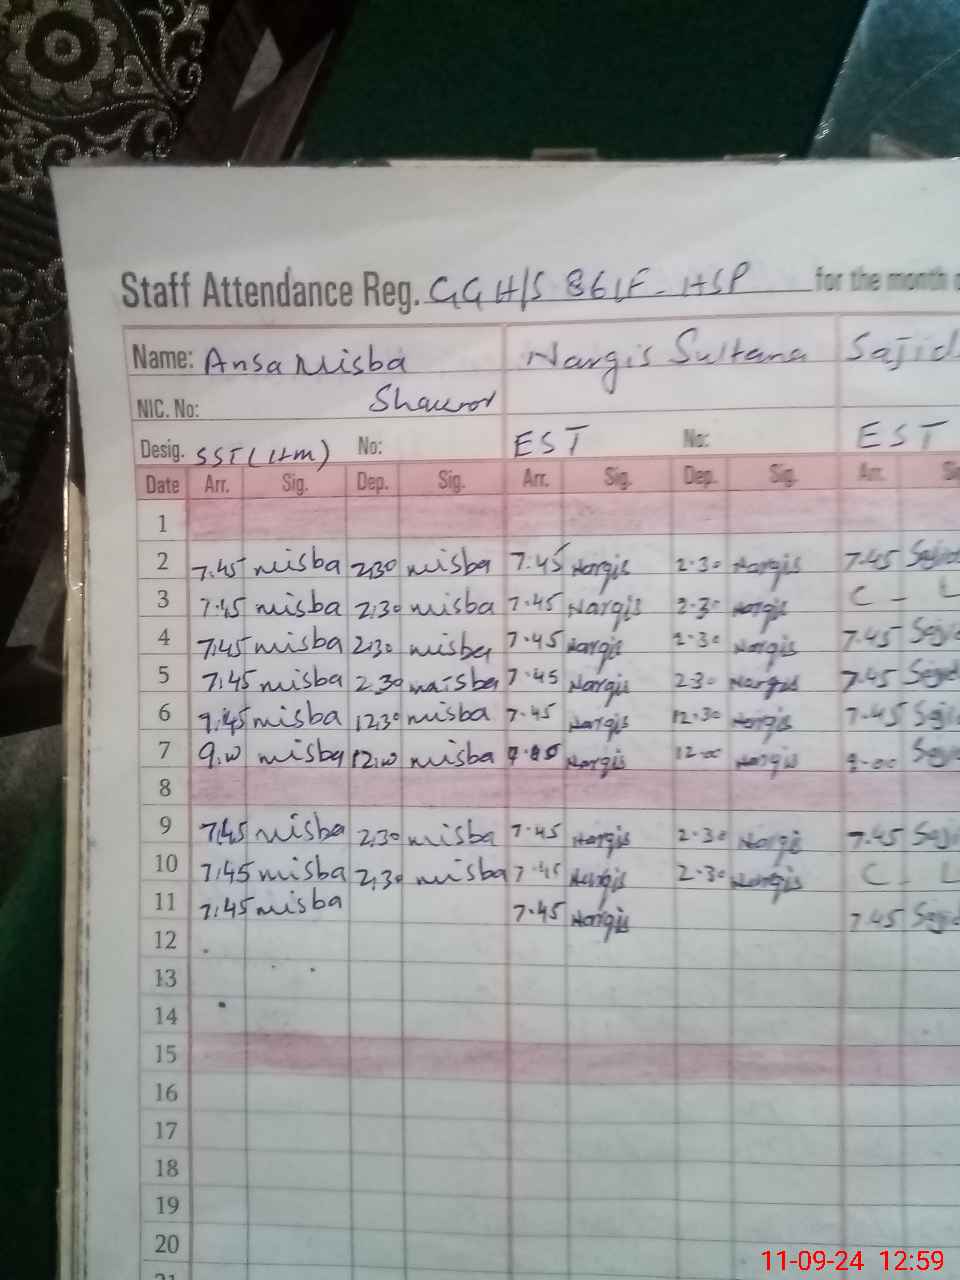 Staff Attendance Reg. GGH/S 861F-HSP for the month
Name: Ansa Misba Nargis Sultana Sajid
NIC. No: Shakoor
Desig. SST(Hm) No: EST No: EST
Date Arr. Sig. Dep. Sig. Arr. Sig. Dep. Sig. Arr.
1
2 7.45 misba 2,30 misba 7.45 Nargis 2.30 Nargis 7.45 Sajid
3 7.45 misba 2,30 misba 7.45 Nargis 2.30 Nargis C - L
4 7.45 misba 2,30 misba 7.45 Nargis 2.30 Nargis 7.45 Sajid
5 7.45 misba 2.30 misba 7.45 Nargis 2.30 Nargis 7.45 Sajid
6 7.45 misba 12.30 misba 7.45 Nargis 12.30 Nargis 7.45 Saji
7 9.00 misba 12.00 misba Nargis 12.00 Nargis 9.00 Saji
8
9 7.45 misba 2,30 misba 7.45 Nargis 2.30 Nargis 7.45 Saji
10 7.45 misba 2,30 misba 7.45 Nargis 2.30 Nargis C - L
11 7.45 misba 7.45 Nargis 7.45 Sajid
12
13
14
15
16
17
18
19
20
11-09-24 12:59